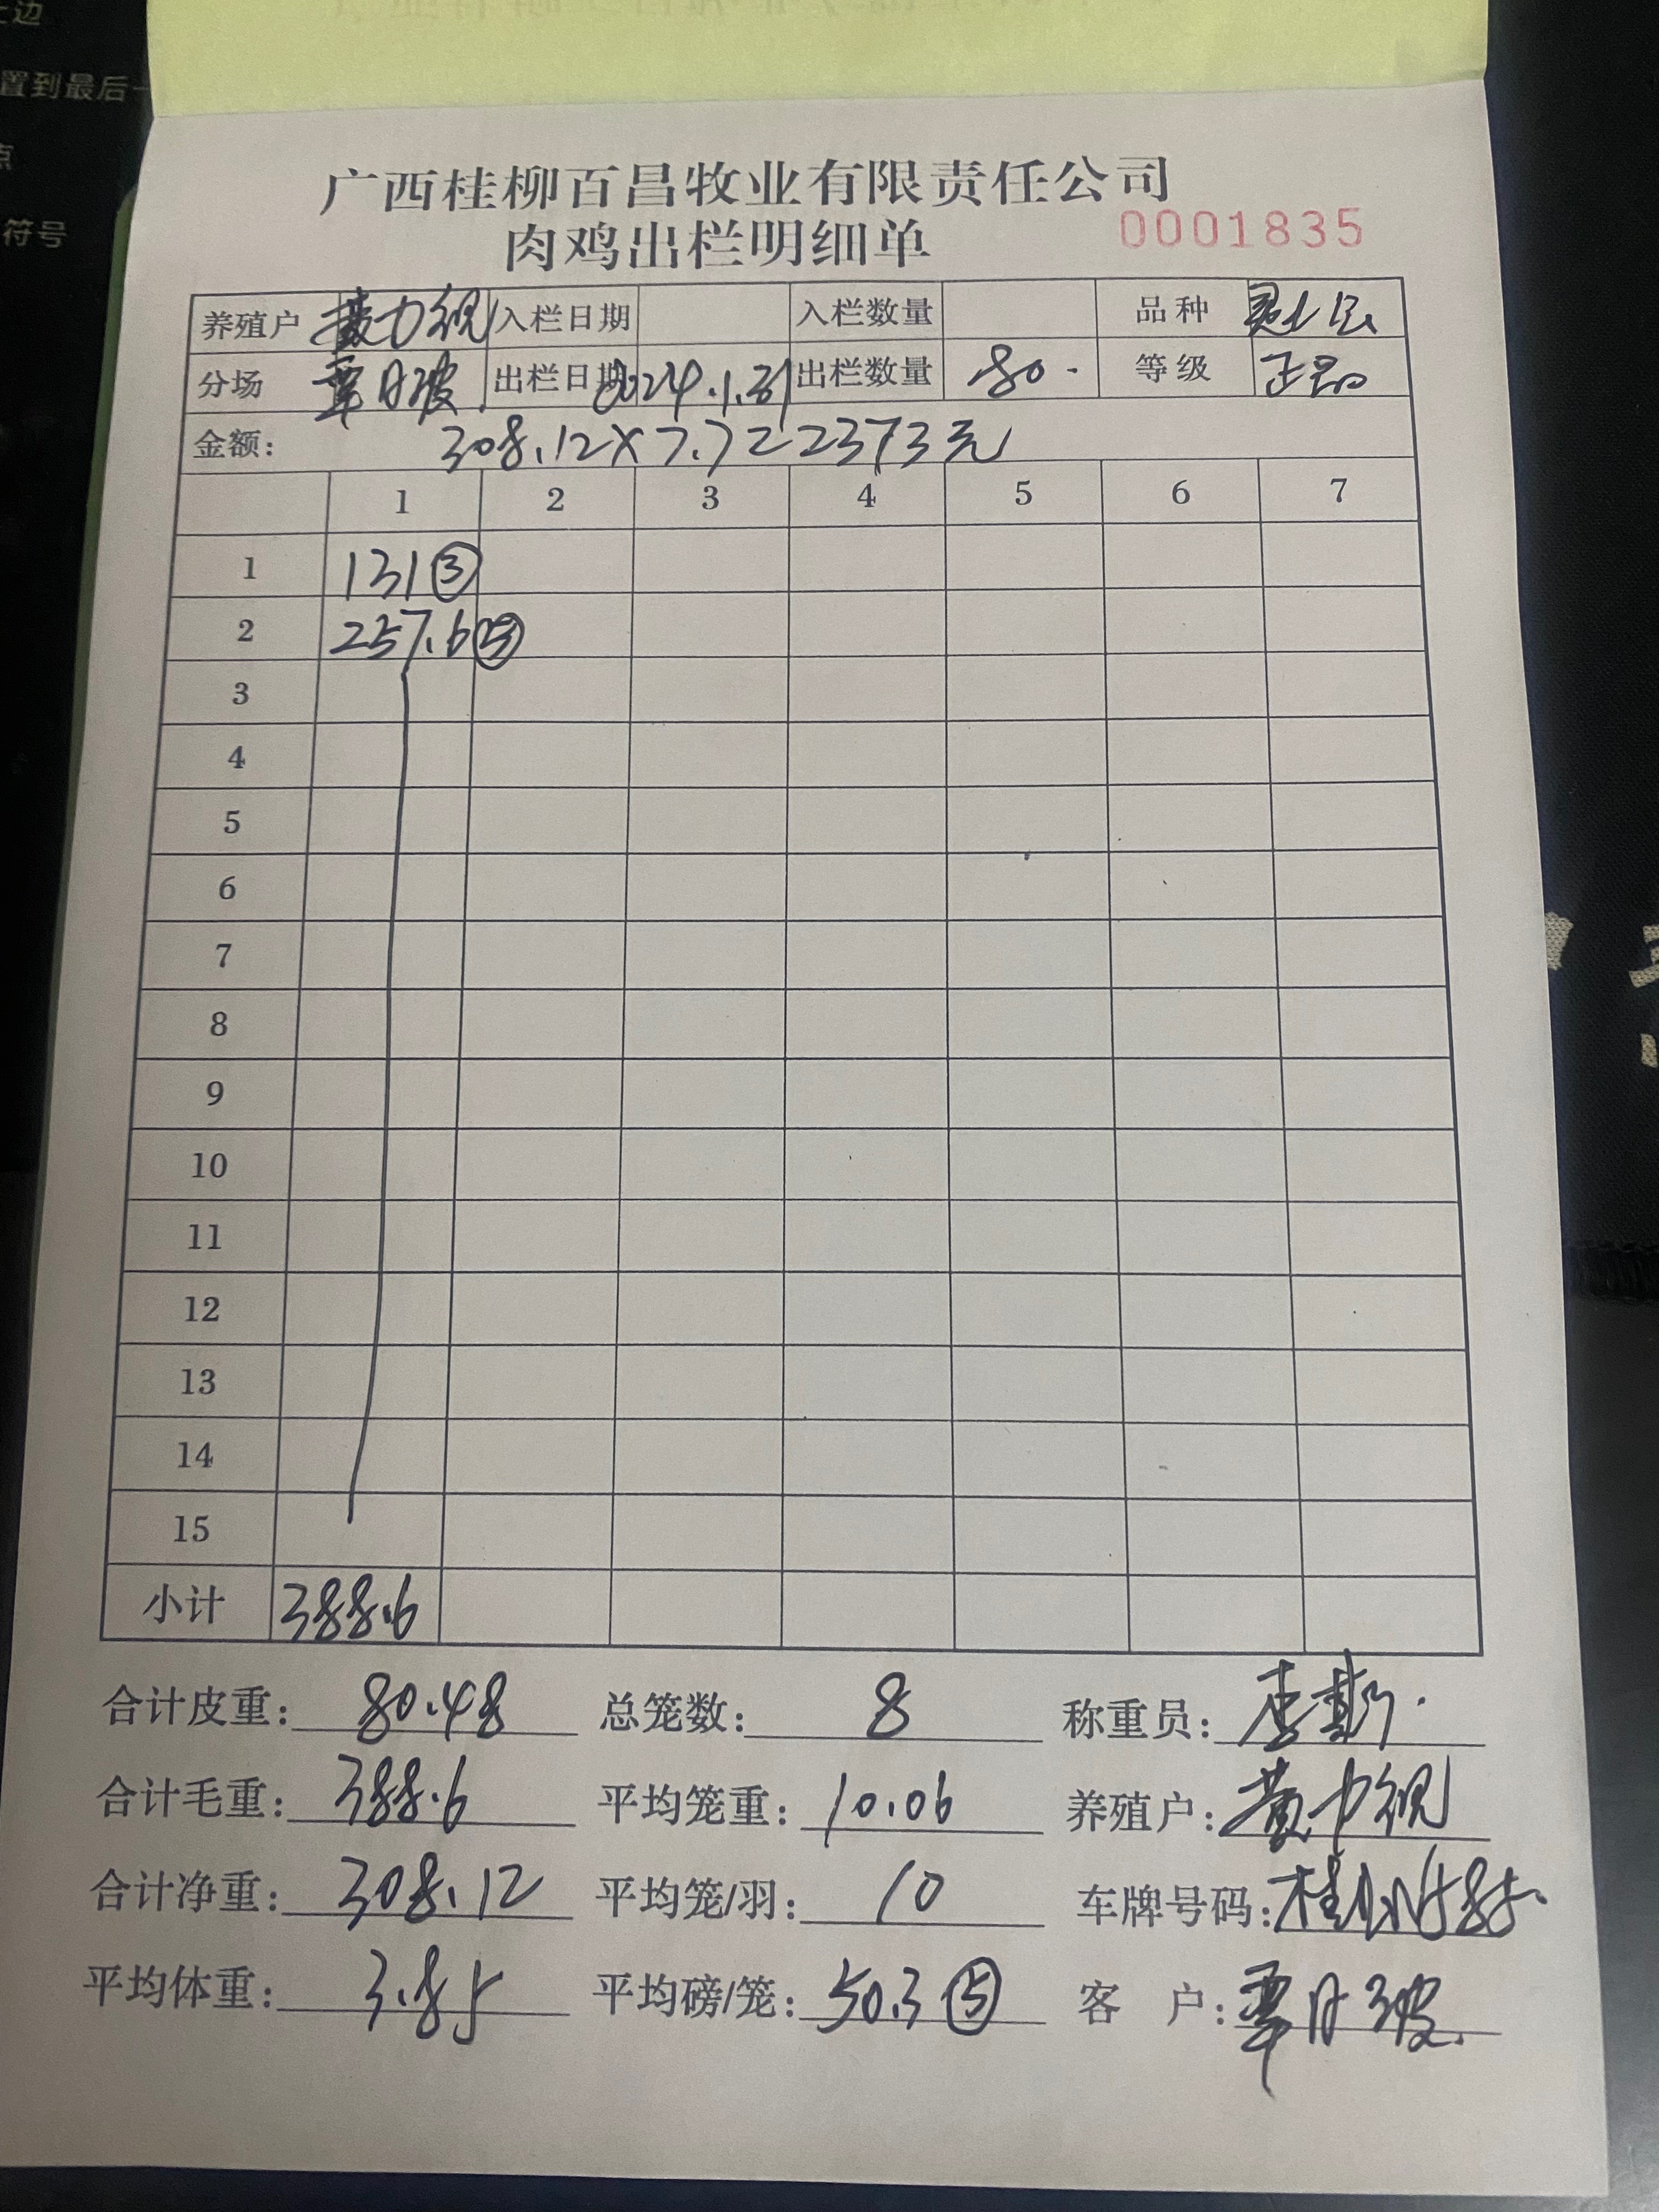 上边
置到最后一
点
符号
广西桂柳百昌牧业有限责任公司
肉鸡出栏明细单
0001835
养殖户 黄力纲 入栏日期 入栏数量 品种
分场 覃日波 出栏日期 2024.1.31 出栏数量 80 等级 正品
金额: 308.12×7.7=2373元
1 2 3 4 5 6 7
1 131③
2 257.6⑤
3
4
5
6
7
8
9
10
11
12
13
14
15
小计 388.6
合计皮重: 80.48 总笼数: 8 称重员:
合计毛重: 388.6 平均笼重: 10.06 养殖户: 黄力纲
合计净重: 308.12 平均笼/羽: 10 车牌号码:
平均体重: 3.85 平均磅/笼: 50.3⑤ 客 户: 覃日波